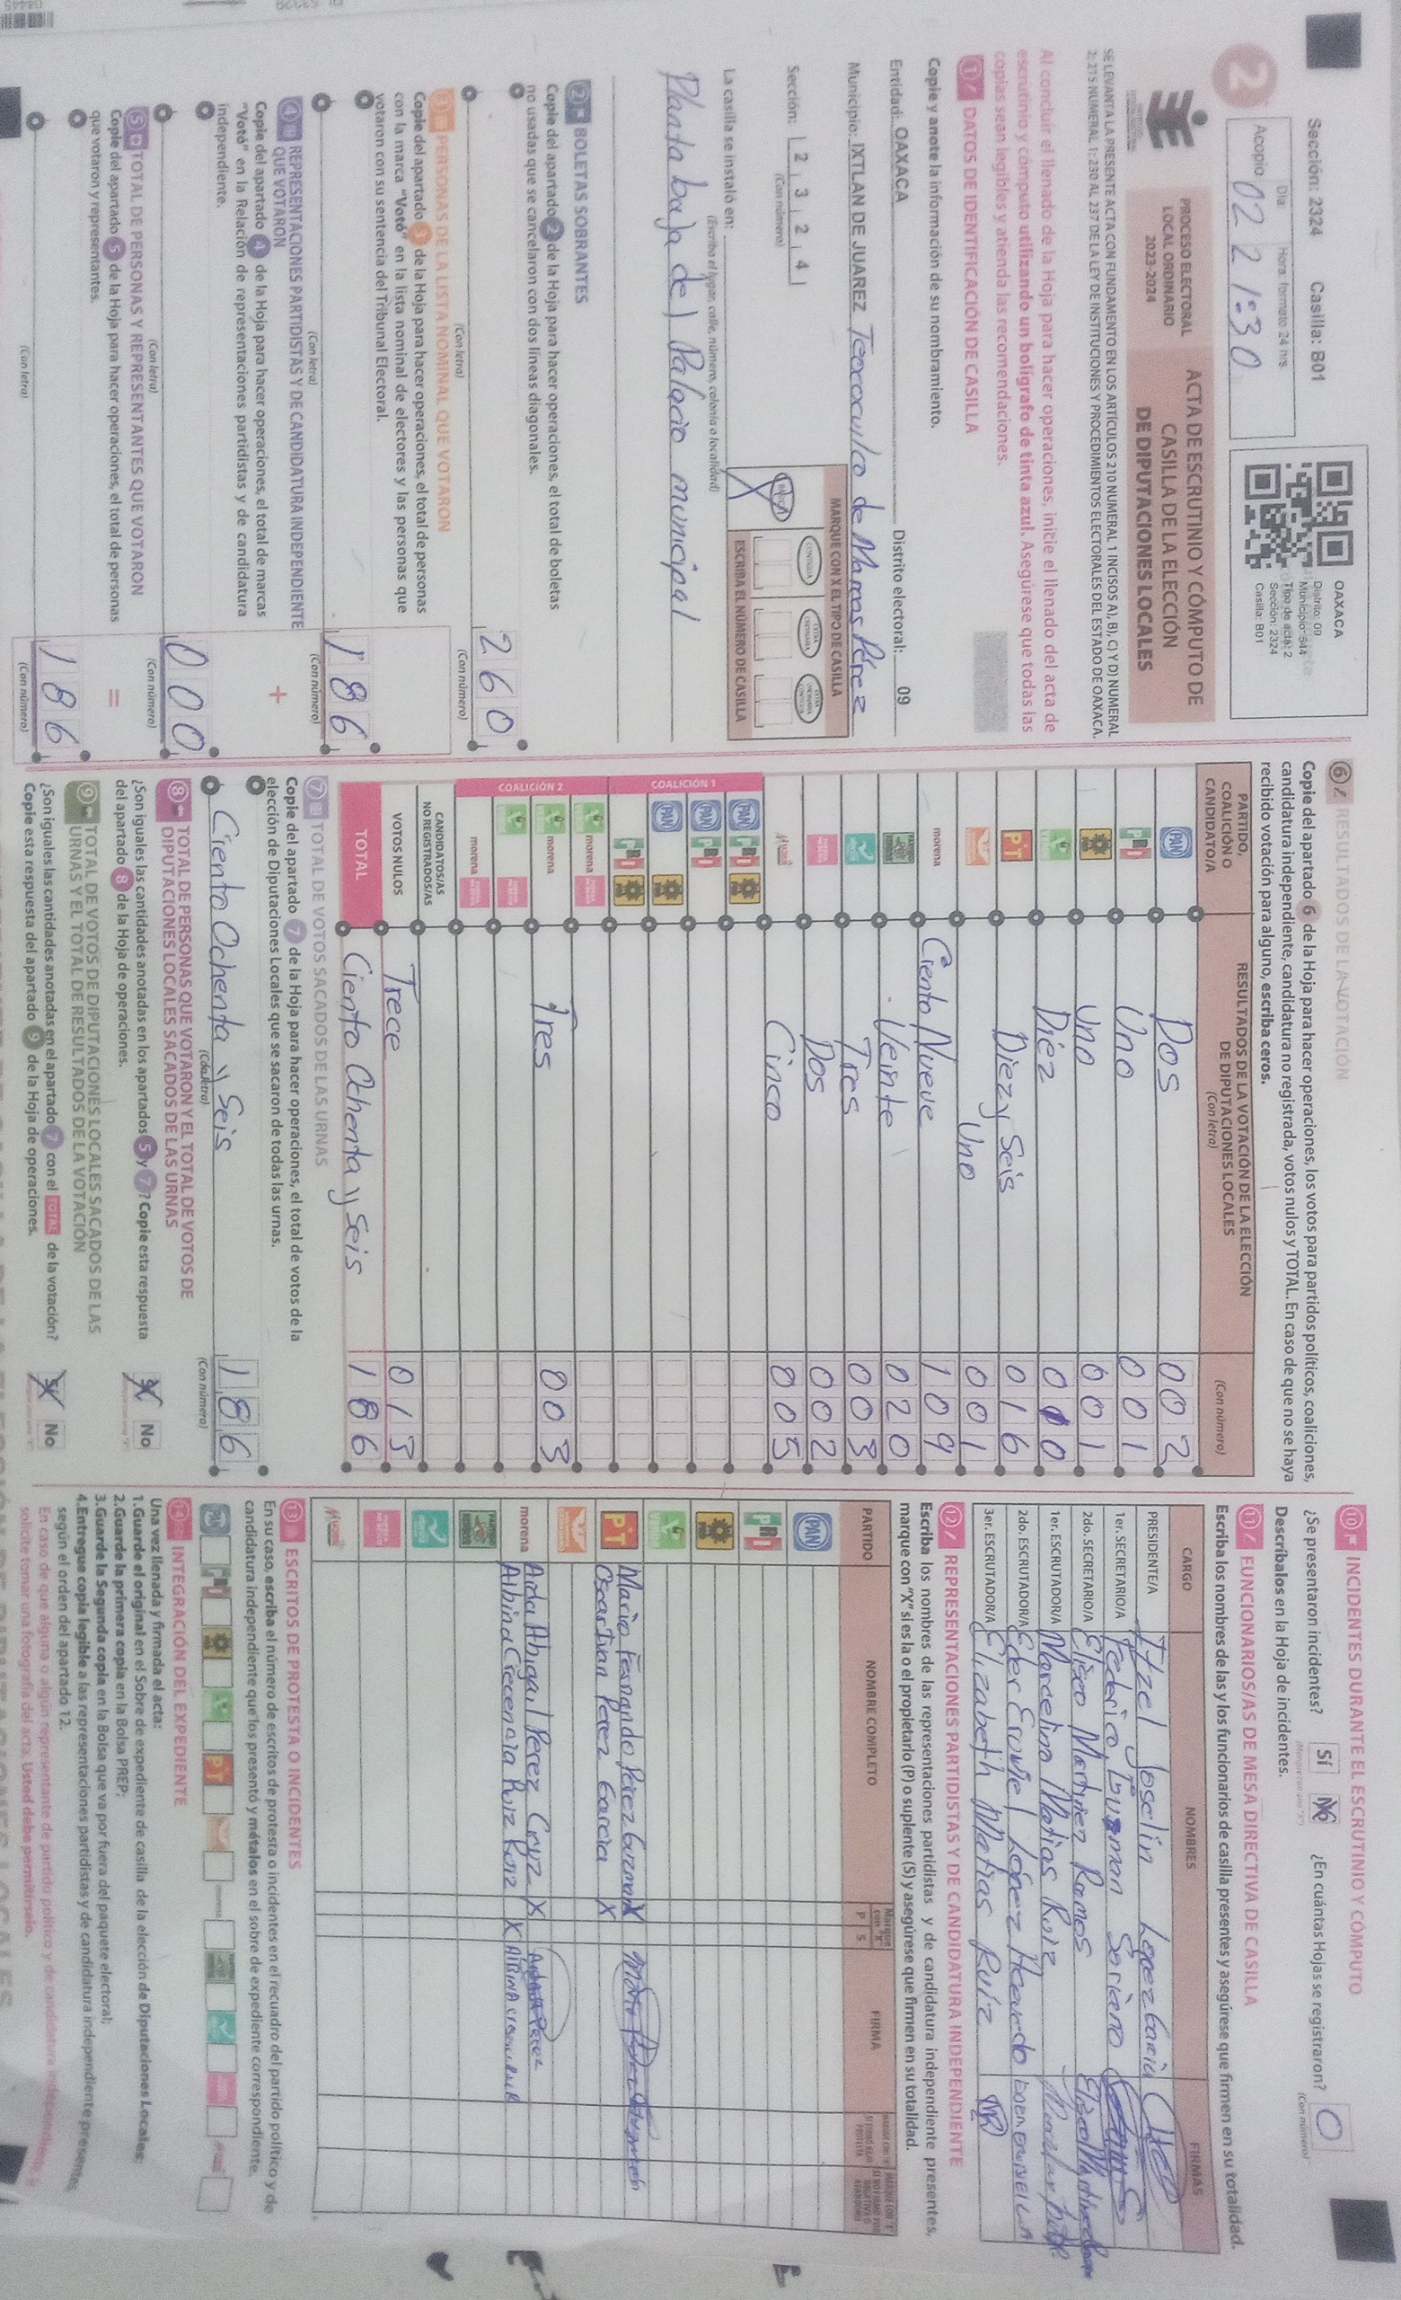 Sección: 2324 Casilla: B01
Día Hora: formato 24 hrs
Acopio 02 21:30
2
OAXACA
Distrito: 09
Municipio: 544
Tipo de acta: 2
Sección: 2324
Casilla: B01
PROCESO ELECTORAL
LOCAL ORDINARIO
2023-2024
ACTA DE ESCRUTINIO Y CÓMPUTO DE
CASILLA DE LA ELECCIÓN
DE DIPUTACIONES LOCALES
SE LEVANTA LA PRESENTE ACTA CON FUNDAMENTO EN LOS ARTÍCULOS 210 NUMERAL 1 INCISOS A), B), C) Y D) NUMERAL
2; 215 NUMERAL 1; 230 AL 237 DE LA LEY DE INSTITUCIONES Y PROCEDIMIENTOS ELECTORALES DEL ESTADO DE OAXACA.
Al concluir el llenado de la Hoja para hacer operaciones, inicie el llenado del acta de
escrutinio y cómputo utilizando un bolígrafo de tinta azul. Asegúrese que todas las
copias sean legibles y atienda las recomendaciones.
1 DATOS DE IDENTIFICACIÓN DE CASILLA
Copie y anote la información de su nombramiento.
Entidad: OAXACA Distrito electoral: 09
Municipio: IXTLAN DE JUAREZ Teococuilco de Marcos Pérez
Sección: 2 3 2 4
(Con número)
MARQUE CON X EL TIPO DE CASILLA
BÁSICA CONTIGUA EXTRAORDINARIA EXTRAORDINARIA CONTIGUA
ESCRIBA EL NÚMERO DE CASILLA
La casilla se instaló en:
(Escriba el lugar, calle, número, colonia o localidad)
Planta baja del Palacio municipal
2 BOLETAS SOBRANTES
Copie del apartado 2 de la Hoja para hacer operaciones, el total de boletas
no usadas que se cancelaron con dos líneas diagonales.
260
(Con letra) (Con número)
3 PERSONAS DE LA LISTA NOMINAL QUE VOTARON
Copie del apartado 3 de la Hoja para hacer operaciones, el total de personas
con la marca "Votó" en la lista nominal de electores y las personas que
votaron con su sentencia del Tribunal Electoral.
186
(Con letra) (Con número)
4 REPRESENTACIONES PARTIDISTAS Y DE CANDIDATURA INDEPENDIENTE
QUE VOTARON
+
Copie del apartado 4 de la Hoja para hacer operaciones, el total de marcas
"Votó" en la Relación de representaciones partidistas y de candidatura
independiente.
000
(Con letra) (Con número)
5 TOTAL DE PERSONAS Y REPRESENTANTES QUE VOTARON
=
Copie del apartado 5 de la Hoja para hacer operaciones, el total de personas
que votaron y representantes.
186
(Con letra) (Con número)
6 RESULTADOS DE LA VOTACIÓN
Copie del apartado 6 de la Hoja para hacer operaciones, los votos para partidos políticos, coaliciones,
candidatura independiente, candidatura no registrada, votos nulos y TOTAL. En caso de que no se haya
recibido votación para alguno, escriba ceros.
PARTIDO, COALICIÓN O CANDIDATO/A
RESULTADOS DE LA VOTACIÓN DE LA ELECCIÓN
DE DIPUTACIONES LOCALES
(Con letra) (Con número)
PAN Dos 002
PRI Uno 001
Uno 001
Diez 010
PT Diez y Seis 016
Uno 001
morena Ciento Nueve 109
Veinte 020
Tres 003
Dos 002
Cinco 005
COALICIÓN 1
PAN PRI
PAN PRI
PAN
PRI
COALICIÓN 2
morena
morena Tres 003
morena
CANDIDATOS/AS
NO REGISTRADOS/AS
VOTOS NULOS Trece 013
TOTAL Ciento Ochenta y Seis 186
7 TOTAL DE VOTOS SACADOS DE LAS URNAS
Copie del apartado 7 de la Hoja para hacer operaciones, el total de votos de la
elección de Diputaciones Locales que se sacaron de todas las urnas.
Ciento Ochenta y Seis 186
(Con letra) (Con número)
8 TOTAL DE PERSONAS QUE VOTARON Y EL TOTAL DE VOTOS DE
DIPUTACIONES LOCALES SACADOS DE LAS URNAS
¿Son iguales las cantidades anotadas en los apartados 5 y 7? Copie esta respuesta
del apartado 8 de la Hoja de operaciones.
Sí No
9 TOTAL DE VOTOS DE DIPUTACIONES LOCALES SACADOS DE LAS
URNAS Y EL TOTAL DE RESULTADOS DE LA VOTACIÓN
¿Son iguales las cantidades anotadas en el apartado 7 con el TOTAL de la votación?
Copie esta respuesta del apartado 9 de la Hoja de operaciones.
Sí No
10 INCIDENTES DURANTE EL ESCRUTINIO Y CÓMPUTO
¿Se presentaron incidentes? Sí No ¿En cuántas Hojas se registraron? 0
(Con número)
Descríbalos en la Hoja de incidentes.
11 FUNCIONARIOS/AS DE MESA DIRECTIVA DE CASILLA
Escriba los nombres de las y los funcionarios de casilla presentes y asegúrese que firmen en su totalidad.
CARGO NOMBRES FIRMAS
PRESIDENTE/A Itzel Joselin Lopez Garcia
1er. SECRETARIO/A Federico Guzman Soriano
2do. SECRETARIO/A Eliseo Martinez Ramos
1er. ESCRUTADOR/A Marcelina Matias Ruiz
2do. ESCRUTADOR/A Eder Enoviel López
3er. ESCRUTADOR/A Elizabeth Matias Ruiz
12 REPRESENTACIONES PARTIDISTAS Y DE CANDIDATURA INDEPENDIENTE
Escriba los nombres de las representaciones partidistas y de candidatura independiente presentes,
marque con "X" si es la o el propietario (P) o suplente (S) y asegúrese que firmen en su totalidad.
PARTIDO NOMBRE COMPLETO Marque con "X" P S FIRMA
PAN
PRI
Mario Fernando Perez Guzman X
PT Oscar Iván Perez Garcia X
morena Aida Abigail Perez Cruz X
Albina Crecencia Ruiz Ruiz X
13 ESCRITOS DE PROTESTA O INCIDENTES
En su caso, escriba el número de escritos de protesta o incidentes en el recuadro del partido político y de
candidatura independiente que los presentó y métalos en el sobre de expediente correspondiente.
14 INTEGRACIÓN DEL EXPEDIENTE
Una vez llenada y firmada el acta:
1.Guarde el original en el Sobre de expediente de casilla de la elección de Diputaciones Locales;
2.Guarde la primera copia en la Bolsa PREP;
3.Guarde la Segunda copia en la Bolsa que va por fuera del paquete electoral;
4.Entregue copia legible a las representaciones partidistas y de candidatura independiente presentes,
según el orden del apartado 12.
En caso de que alguna o algún representante de partido político y de candidatura independiente
solicite tomar una fotografía del acta, Usted debe permitírselo.